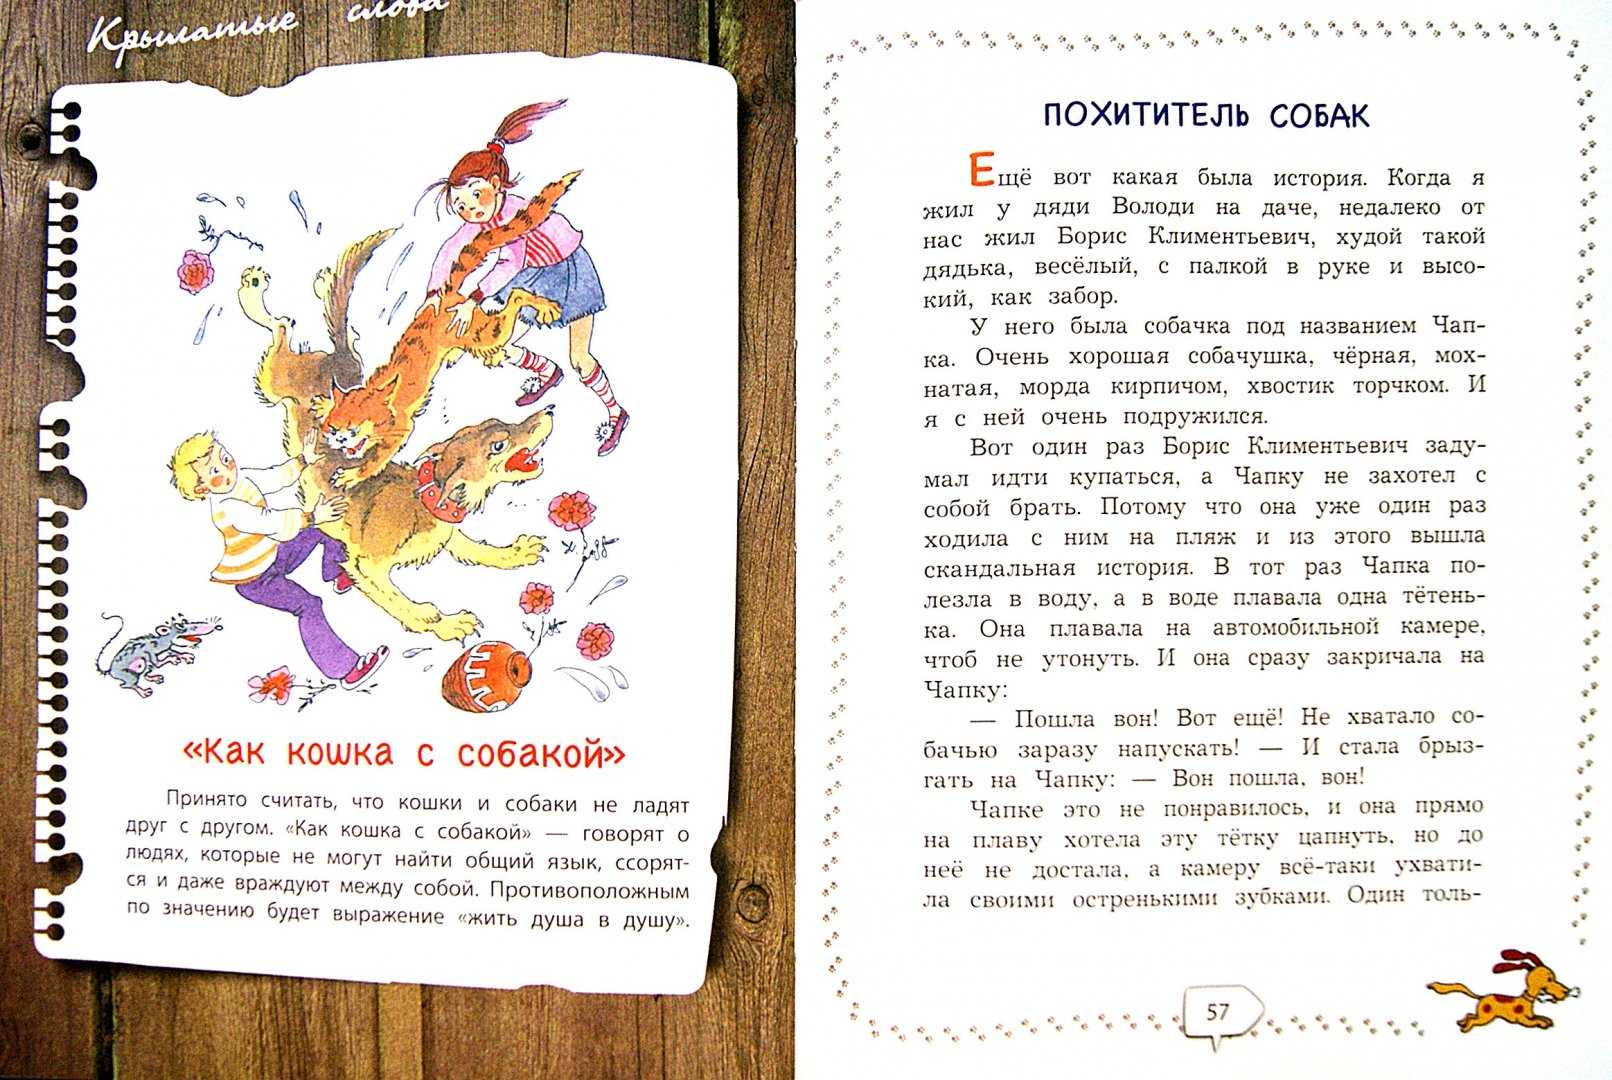 Крылатые слова
«Как кошка с собакой»
Принято считать, что кошки и собаки не ладят
друг с другом. «Как кошка с собакой» — говорят о
людях, которые не могут найти общий язык, ссорят-
ся и даже враждуют между собой. Противоположным
по значению будет выражение «жить душа в душу».
ПОХИТИТЕЛЬ СОБАК
Ещё вот какая была история. Когда я
жил у дяди Володи на даче, недалеко от
нас жил Борис Климентьевич, худой такой
дядька, весёлый, с палкой в руке и высо-
кий, как забор.
У него была собачка под названием Чап-
ка. Очень хорошая собачушка, чёрная, мох-
натая, морда кирпичом, хвостик торчком. И
я с ней очень подружился.
Вот один раз Борис Климентьевич заду-
мал идти купаться, а Чапку не захотел с
собой брать. Потому что она уже один раз
ходила с ним на пляж и из этого вышла
скандальная история. В тот раз Чапка по-
лезла в воду, а в воде плавала одна тётень-
ка. Она плавала на автомобильной камере,
чтоб не утонуть. И она сразу закричала на
Чапку:
— Пошла вон! Вот ещё! Не хватало со-
бачью заразу напускать! — И стала брыз-
гать на Чапку: — Вон пошла, вон!
Чапке это не понравилось, и она прямо
на плаву хотела эту тётку цапнуть, но до
неё не достала, а камеру всё-таки ухвати-
ла своими остренькими зубками. Один толь-
57